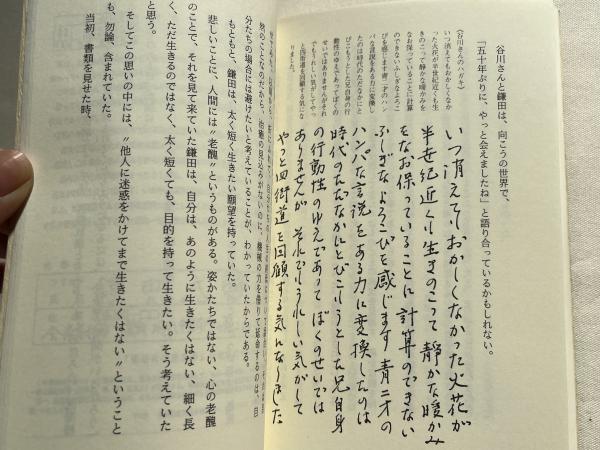 谷川さんと鎌田は、向こうの世界で、
「五十年ぶりに、やっと会えましたね」と語り合っているかもしれない。
〈谷川さんのハガキ〉
いつ消えてもおかしくなか
った火花が半世紀近くも生
きのこって静かな暖かみを
なお保っていることに計算
のできないふしぎなよろこ
びを感じます 青二才のハン
パな言説をある力に変換し
たのは時代のただなかにと
びこもうとした兄自身の行
動性のゆえであってぼくの
せいではありませんがそれ
でもうれしい気がしてやっ
と四街道を回顧する気にな
りました。
いつ消えてもおかしくなかった火花が
半世紀近くも生きのこって 静かな暖かみ
をなお保っていることに 計算のできない
ふしぎなよろこびを感じます 青二才の
ハンパな言説をある力に変換したのは
時代のただなかにとびこもうとした兄自身
の行動性のゆえであって ぼくのせいでは
ありませんが それでもうれしい気がして
やっと四街道を回顧する気になりました
然のことなのだから、治癒の見込みがないのに、機械の力を借りて延命するのは、自
分たちの場合には避けたいと考えていることが、わかっていたからである。
もともと、鎌田は、太く短く生きたい願望を持っていた。
悲しいことに、人間には〝老醜〟というものがある。姿かたちではない、心の老醜
のことで、それを見て来ていた鎌田は、自分は、あのように生きたくはない、細く長
く、ただ生きるのではなく、太く短くても、目的を持って生きたい。そう考えていた
と思う。
そしてこの思いの中には、〝他人に迷惑をかけてまで生きたくはない〟ということ
も、勿論、含まれていた。
当初、書類を見せた時、